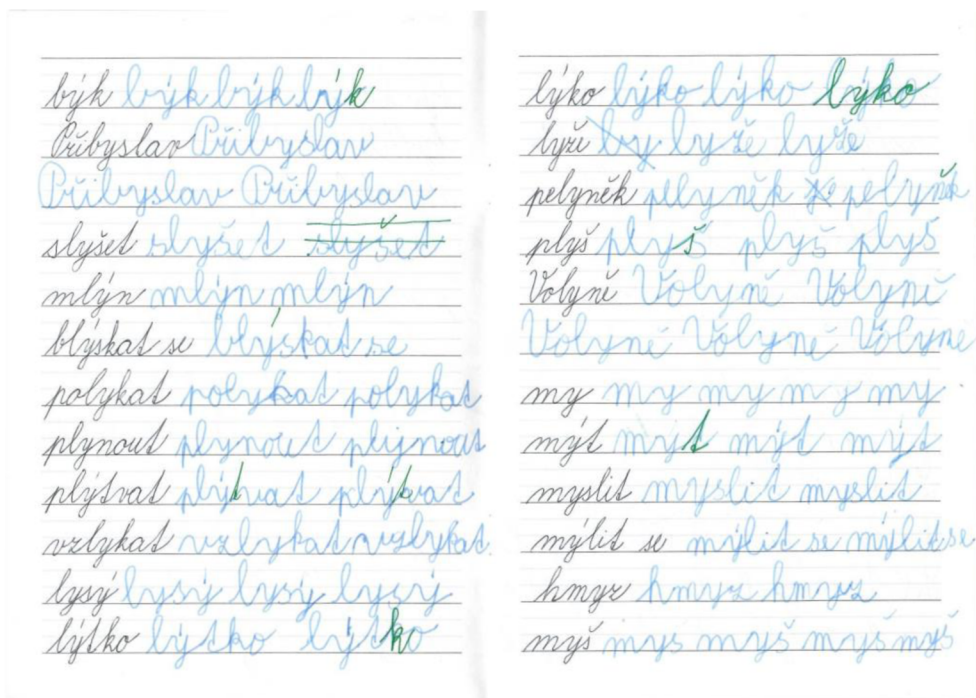 býk býk býk býk
Přibyslav Přibyslav
Přibyslav Přibyslav
slyšet slyšet slyšet
mlýn mlýn mlýn
blýskat se blýskat se
polykat polykat polykat
plynout plynout plynout
plýtvat plýtvat plýtvat
vzlykat vzlykat vzlykat
lysý lysý lysý lysý
lýtko lýtko lýtko
lýko lýko lýko lýko
lyže ly lyže lyže
pelyněk pelyněk pelyněk
plyš plyš plyš plyš
Volyně Volyně Volyně
Volyně Volyně Volyne
my my my my my
mýt myt mýt mýt
myslit myslit myslit
mýlit se mýlit se mýlit se
hmyz hmyz hmyz
myš mys myš myš myš